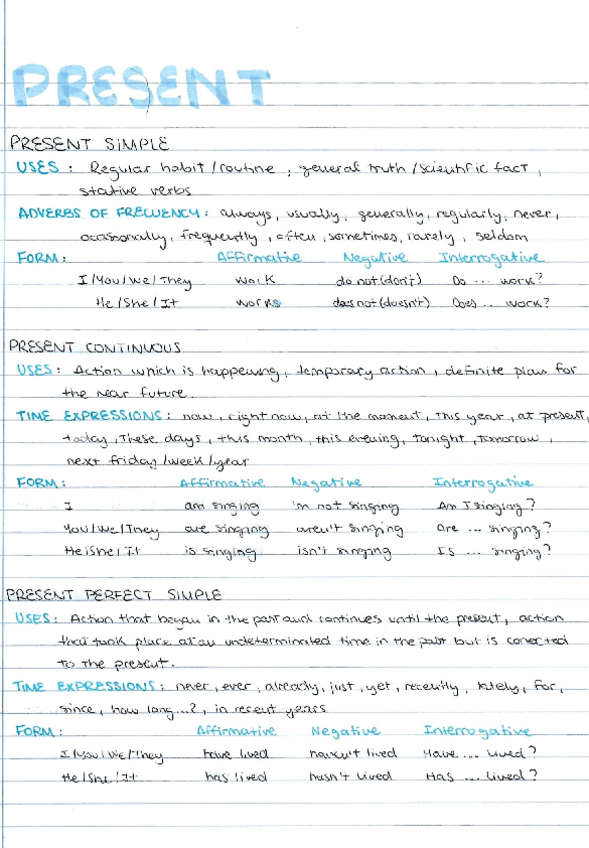 PRESENT
PRESENT SIMPLE
USES: Regular habit / routine, general truth / scientific fact,
stative verbs
ADVERBS OF FRECUENCY: always, usually, generally, regularly, never,
occasionally, frequently, often, sometimes, rarely, seldom
FORM: Affirmative Negative Interrogative
I/You/We/They work do not (don't) Do ... work?
He/She/It works does not (doesn't) Does .. work?
PRESENT CONTINUOUS
USES: Action which is happening, temporary action, definite plan for
the near future.
TIME EXPRESSIONS: now, right now, at the moment, this year, at present,
today, these days, this month, this evening, tonight, tomorrow,
next friday/week/year
FORM: Affirmative Negative Interrogative
I am singing 'm not singing Am I singing?
You/We/They are singing aren't singing Are ... singing?
He/She/It is singing isn't singing Is ... singing?
PRESENT PERFECT SIMPLE
USES: Action that began in the past and continues until the present, action
that took place at an undeterminated time in the past but is conected
to the present.
TIME EXPRESSIONS: never, ever, already, just, yet, recently, lately, for,
since, how long...?, in recent years
FORM: Affirmative Negative Interrogative
I/You/We/They have lived haven't lived Have ... lived?
He/She/It has lived hasn't lived Has ... lived?